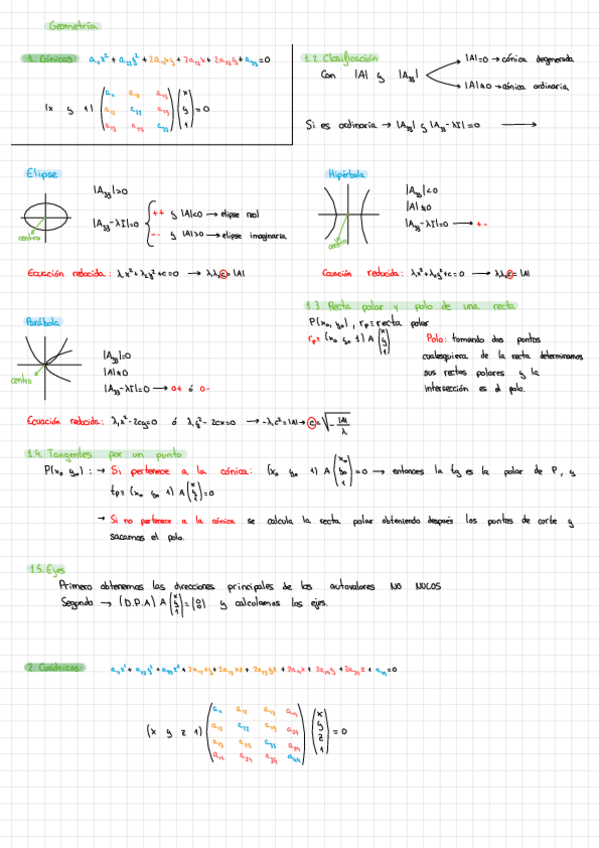 Geometría
1. Cónicas: a₁₁x² + a₂₂y² + 2a₁₂xy + 2a₁₃x + 2a₂₃y + a₃₃ = 0
(x y 1) (a₁₁ a₁₂ a₁₃ a₁₂ a₂₂ a₂₃ a₁₃ a₂₃ a₃₃) (x y 1) = 0
1.2. Clasificación
Con |A| y |A₃₃|
|A|=0 → cónica degenerada
|A|≠0 → cónica ordinaria
Si es ordinaria → |A₃₃| y |A₃₃-λI|=0 →
Elipse
|A₃₃|>0
|A₃₃-λI|=0
++ y |A|<0 → elipse real
-- y |A|>0 → elipse imaginaria
centro
Ecuación reducida: λ₁x²+λ₂y²+c=0 → λ₁λ₂c=|A|
Hipérbola
|A₃₃|<0
|A|≠0
|A₃₃-λI|=0 → +-
centro
Ecuación reducida: λ₁x²+λ₂y²+c=0 → λ₁λ₂c=|A|
1.3. Recta polar y polo de una recta
P(x₀, y₀), rₚ=recta polar
rₚ=(x₀ y₀ 1) A (x y 1)
Polo: tomando dos puntos
cualesquiera de la recta determinamos
sus rectas polares y la
intersección es el polo.
Parábola
|A₃₃|=0
|A|≠0
|A₃₃-λI|=0 → 0+ ó 0-
centro
Ecuación reducida: λ₁x²-2cy=0 ó λ₁y²-2cx=0 → -λc²=|A| → c=√(-|A|/λ)
1.4. Tangentes por un punto
P(x₀ y₀): → Si pertenece a la cónica: (x₀ y₀ 1) A (x₀ y₀ 1)=0 → entonces la tg es la polar de P, y
tₚ=(x₀ y₀ 1) A (x y 1)=0
→ Si no pertenece a la cónica se calcula la recta polar obteniendo después los puntos de corte y
sacamos el polo.
1.5. Ejes
Primero obtenemos las direcciones principales de los autovalores NO NULOS
Segundo → (D.P.A) A (x y 1)=(0 0) y calculamos los ejes.
2. Cuádricas: a₁₁x² + a₂₂y² + a₃₃z² + 2a₁₂xy + 2a₁₃xz + 2a₂₃yz + 2a₁₄x + 2a₂₄y + 2a₃₄z + a₄₄ = 0
(x y z 1) (a₁₁ a₁₂ a₁₃ a₁₄ a₁₂ a₂₂ a₂₃ a₂₄ a₁₃ a₂₃ a₃₃ a₃₄ a₁₄ a₂₄ a₃₄ a₄₄) (x y z 1) = 0